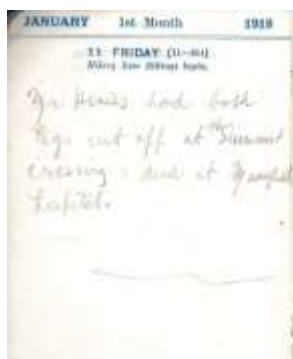 JANUARY 1st Month 1918
11 FRIDAY (11-354)
Hilary Law Sittings begin.
Mr Hinds had both
legs cut off at the Summit
crossing & died at
hospital.